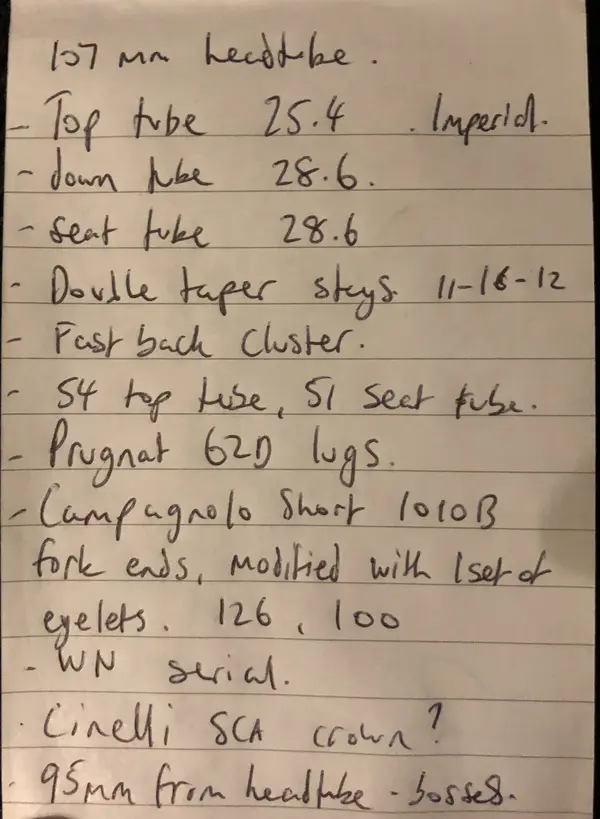 107 mm headtube.
- Top tube 25.4 . Imperial.
- down tube 28.6.
- seat tube 28.6
- Double taper stays. 11-16-12
- Fastback Cluster.
- 54 top tube, 51 seat tube.
- Prugnat 62D lugs.
- Campagnolo Short 1010B
fork ends, modified with 1 set of
eyelets. 126, 100
- WN serial.
. Cinelli SCA crown?
. 95mm from headtube - bosses.